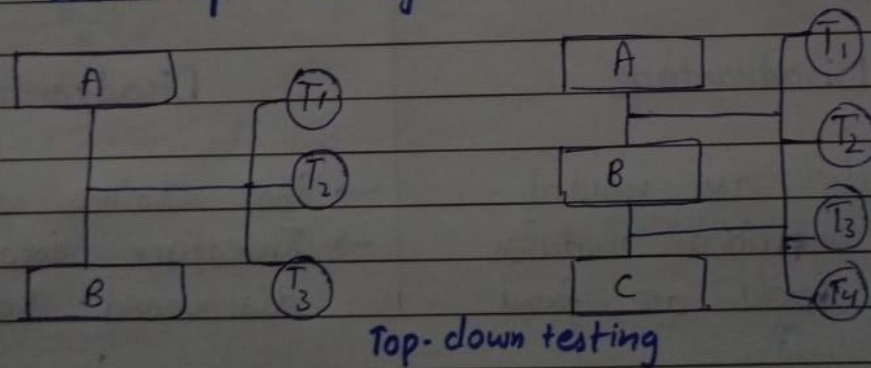 A
T1
T2
B
T3
A
T1
B
T2
T3
C
T4
Top-down testing